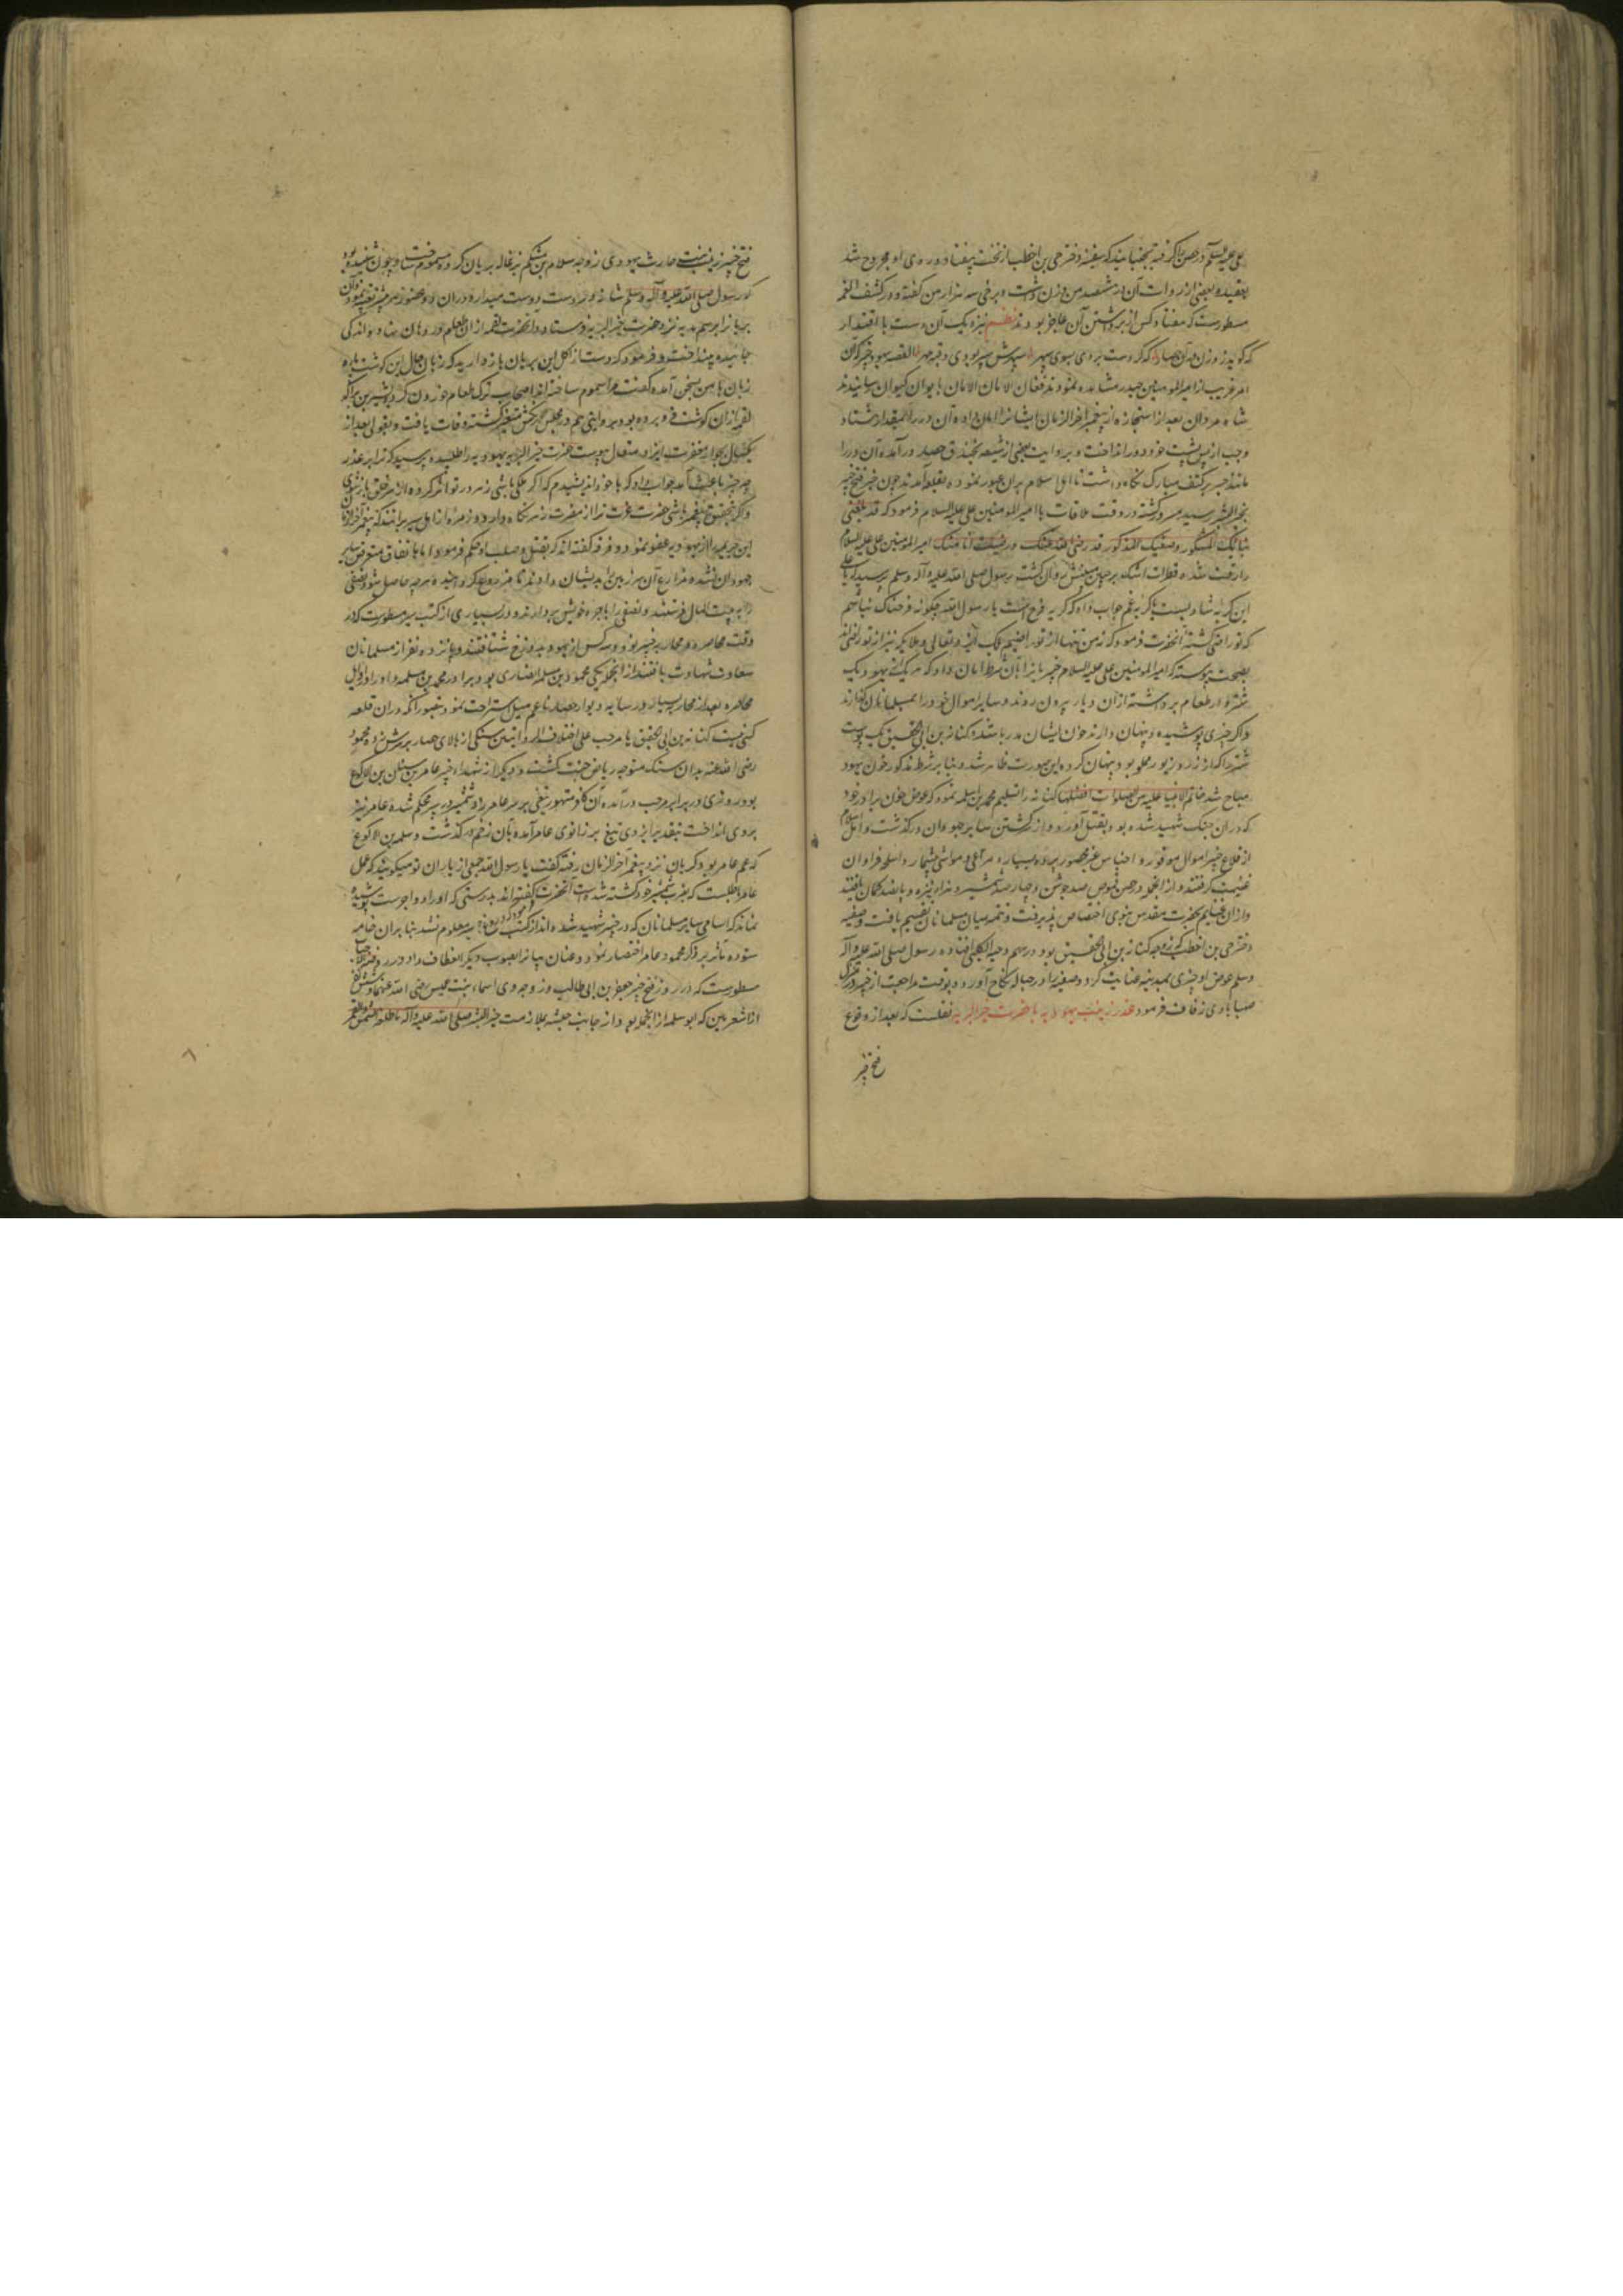 علی علیه السلام در حصن را گرفته بجنبانید که صفیه دختر حی بن اخطب از تخت بیفتاد و روی او مجروح شد
بعقیده بعضی از روات آن در هشتصد من وزن داشت و برخی سه هزار من گفته و در کشف الغمه
مسطورست که هفتاد کس از برداشتن آن عاجز بودند نظم
که گر دست بردی بسوی سپهر القصه یهود خیبر که آن
امر غریب از امیر المومنین حیدر مشاهده نمودند فغان الامان الامان بایوان کیوان رسانیدند
شاه مردان بعد از استجازه از پیغمبر آخر الزمان ایشانرا امان داده آن در را
وجب از پس پشت خود دور انداخت و بروایت بعضی از شیعه بخندق حصار در آمده آن در را
مانند بر کتف مبارک نگاه داشت تا اهل اسلام بران عبور نموده بقلعه آمدند چون خبر فتح خیبر
بخیر البشر رسید مسرور گشته در وقت ملاقات با امیر المومنین علی علیه السلام فرمود که قد بلغنی
نبائک المشکور و صنیعک المذکور قد رضی الله عنک و رضیت انا عنک امیر المومنین علی علیه السلام
را رقت شده قطرات اشک بر روان گشت رسول صلی الله علیه و آله و سلم پرسید که یا علی
این گریه شادیست یا گریه غم جواب داد که گریه فرح است یا رسول الله چگونه فرحناک نباشم
که تو راضی گشته آنحضرت فرمود که نه من تنها از تو راضیم بلکه ایزد تعالی و ملایکه نیز از تو راضی‌اند
بصحت پیوسته که امیر المومنین علی علیه السلام خیبریانرا بآن شرط امان داد که هر یک از یهود یک
شتروار طعام برداشته ازان دیار بیرون روند و سایر اموال خود را بمسلمانان گذارند
و اگر چیزی پوشیده و پنهان دارند خون ایشان هدر باشد و کنانه بن ابی الحقیق یک پوست
شتر را که از زر و زیور مملو بود پنهان کرده این صورت ظاهر شد و بنا بر شرط مذکور خون یهود
مباح شد خاتم الانبیا علیه من الصلوات افضلها کنانه را تسلیم محمد بن مسلمه نمود که عوض خون برادر خود
که دران جنگ شهید شده بود بقتل آورد و از کشتن سایر جهودان درگذشت و اهل اسلام
از قلاع خیبر اموال موفور و اجناس غیر محصور و برده بسیار و مراعی و مواشی بیشمار و اسلحه فراوان
غنیمت گرفتند و ازانجمله در حصن قموص صد جوشن و چهارصد شمشیر و هزار نیزه و پانصد کمان یافتند
و ازان غنایم بحضرت مقدس نبوی اختصاص پذیرفت و تتمه میان مسلمانان تقسیم یافت و صفیه
دختر حی بن اخطب که زوجه کنانه بن ابی الحقیق بود در سهم دحیة الکلبی افتاده رسول صلی الله علیه و آله
و سلم عوض او چیزی بدحیه عنایت کرد و صفیه را در حباله نکاح آورد و بوقت مراجعت از خیبر در منزل
صهبا با وی زفاف فرمود غدر زینب یهودیه با حضرت خیر البریه نقلست که بعد از وقوع
فتح خیبر
فتح خیبر زینب بنت حارث یهودی زوجه سلام بن مشکم بزغاله بریان کرده مسموم ساخت و چون شنیده بود
که رسول صلی الله علیه و آله و سلم شانه و دست دوست میدارد دران دو عضو زهر بیشتر تعبیه نمود و آن
بریانرا برسم هدیه نزد حضرت خیر البریه فرستاد و آنحضرت لقمه ازان طعام در دهان نهاد و اندکی
خاییده بینداخت و فرمود که دست از اکل این بریان باز دارید که زبان حال این گوشت پاره
زبان با من بسخن آمده گفت مرا مسموم ساخته‌اند اصحاب ترک طعام خوردن کردند و بشر بن براء که
لقمه ازان گوشت فرو برده بود بروایتی هم در مجلس رنگش متغیر گشته وفات یافت و بقولی بعد از
یکسال بجوار مغفرت ایزد متعال پیوست حضرت خیر البریه یهودیه را طلبیده پرسید که ترا بر غدر
چه چیز باعث آمد جواب داد که با خود اندیشیدم که اگر ملکی باشی زهر در تو اثر کرده از تو خلق باز رهند
و اگر بتحقیق پیغمبر باشی حضرت عزت ترا از مضرت زهر نگاه دارد و زمره از اهل سیر برانند که پیغمبر آخر الزمان
این جریمه را از یهودیه عفو نمود و فرقه گفته‌اند که بقتل و صلب او حکم فرمود اما باتفاق متعرض سایر
جهودان نشده مزارع آن سرزمین را بدیشان دادند تا مزروع گردانیده هر چه حاصل شود نصفی
را به بیت المال فرستند و نصفی را باجره خویش بردارند و در بسیاری از کتب سیر مسطورست که در
وقت محاصره و محاربه خیبر نود و سه کس از یهود بدوزخ شتافتند و پانزده نفر از مسلمانان
سعادت شهادت یافتند ازانجمله یکی محمود بن مسلمه انصاری بود برادر محمد بن مسلمه و او در اوایل
محاصره بعد از محاربه بسیار در سایه دیوار حصار ناعم میل استراحت نمود بتصور آنکه دران قلعه
کسی نیست کنانه بن ابی الحقیق یا مرحب علی اختلاف الروایتین سنگی از بالای حصار بر سرش زده محمود
رضی الله عنه بدان سنگ متوجه ریاض جنت گشت و دیگری از شهداء خیبر عامر بن سنان بن الاکوع
بود که روزی در برابر مرحب درآمده آن کافر متهور تیغی بر سر عامر زد و شمشیر در سپر محکم شده عامر نیز
بروی انداخت بتقدیر ایزدی تیغ بر زانوی عامر آمده بآن زخم درگذشت و سلمه بن الاکوع
که عم عامر بود گریان نزد پیغمبر آخر الزمان رفته گفت یا رسول الله جمعی از یاران تو میگویند که عمل
عامر باطلست که بضرب شمشیر خود کشته شده است آنحضرت گفت بدرستی که او را دو اجرست پوشیده
نماند که اسامی سایر مسلمانان که در خیبر شهید شده‌اند از کتب متداوله بوضوح معلوم نشد بنا بران خامه
ستوده تأثیر بر ذکر محمود و عامر اختصار نمود و عنان بیانرا بصوب دیگر انعطاف داد در روضة الاحباب
مسطورست که در روز فتح خیبر جعفر بن ابی طالب و زوجه وی اسماء بنت عمیس رضی الله عنهما و شش کس
از اشعریین که ابو سلمه ازانجمله بود از جانب حبشه بملازمت خیر البشر صلی الله علیه و آله